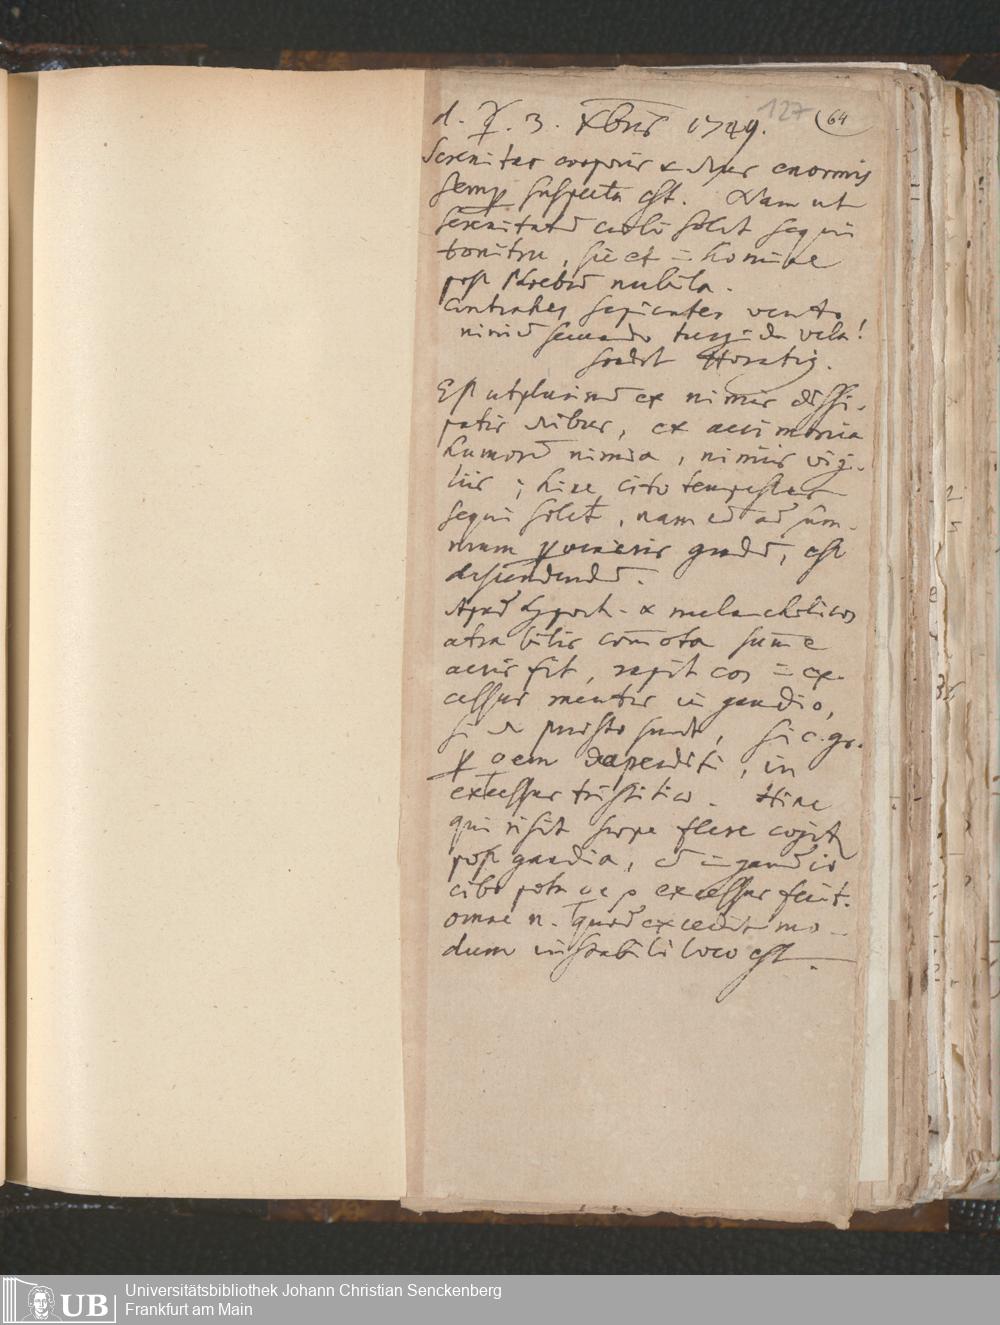 127 64
d. ☿. 3. Xbris 1749.
Serenitas corporis & enormis
semp suspecta est. Nam ut
serenitatē coeli solet sequi
tonitru, sic et homine
post Phoebū nubila.
Contrahes sapienter vento,
nimiū secundo turgida vela!
Horatiꝰ.
Est utplurimū ex nimis dissi-
patis ex acrimonia
humorū nimia, nimiis vigi-
liis; hinc cito tempestas
sequi solet, nam cū ad sum-
mum veneris gradū, est
descendendū.
Apud hypoch. & melancholicos
atra bilis com̄ota sum̄e
acris fit, rapit eos ex-
cessus mentis in gaudio,
si sunt, si e. gr.
in
excessus tristitiae. Hinc
qui risit saepe flere cogit
post gaudia, cū
cibo potu excessus fuit.
omne n. quod excedit mo-
dum instabili loco est.
Universitätsbibliothek Johann Christian Senckenberg
Frankfurt am Main
UB